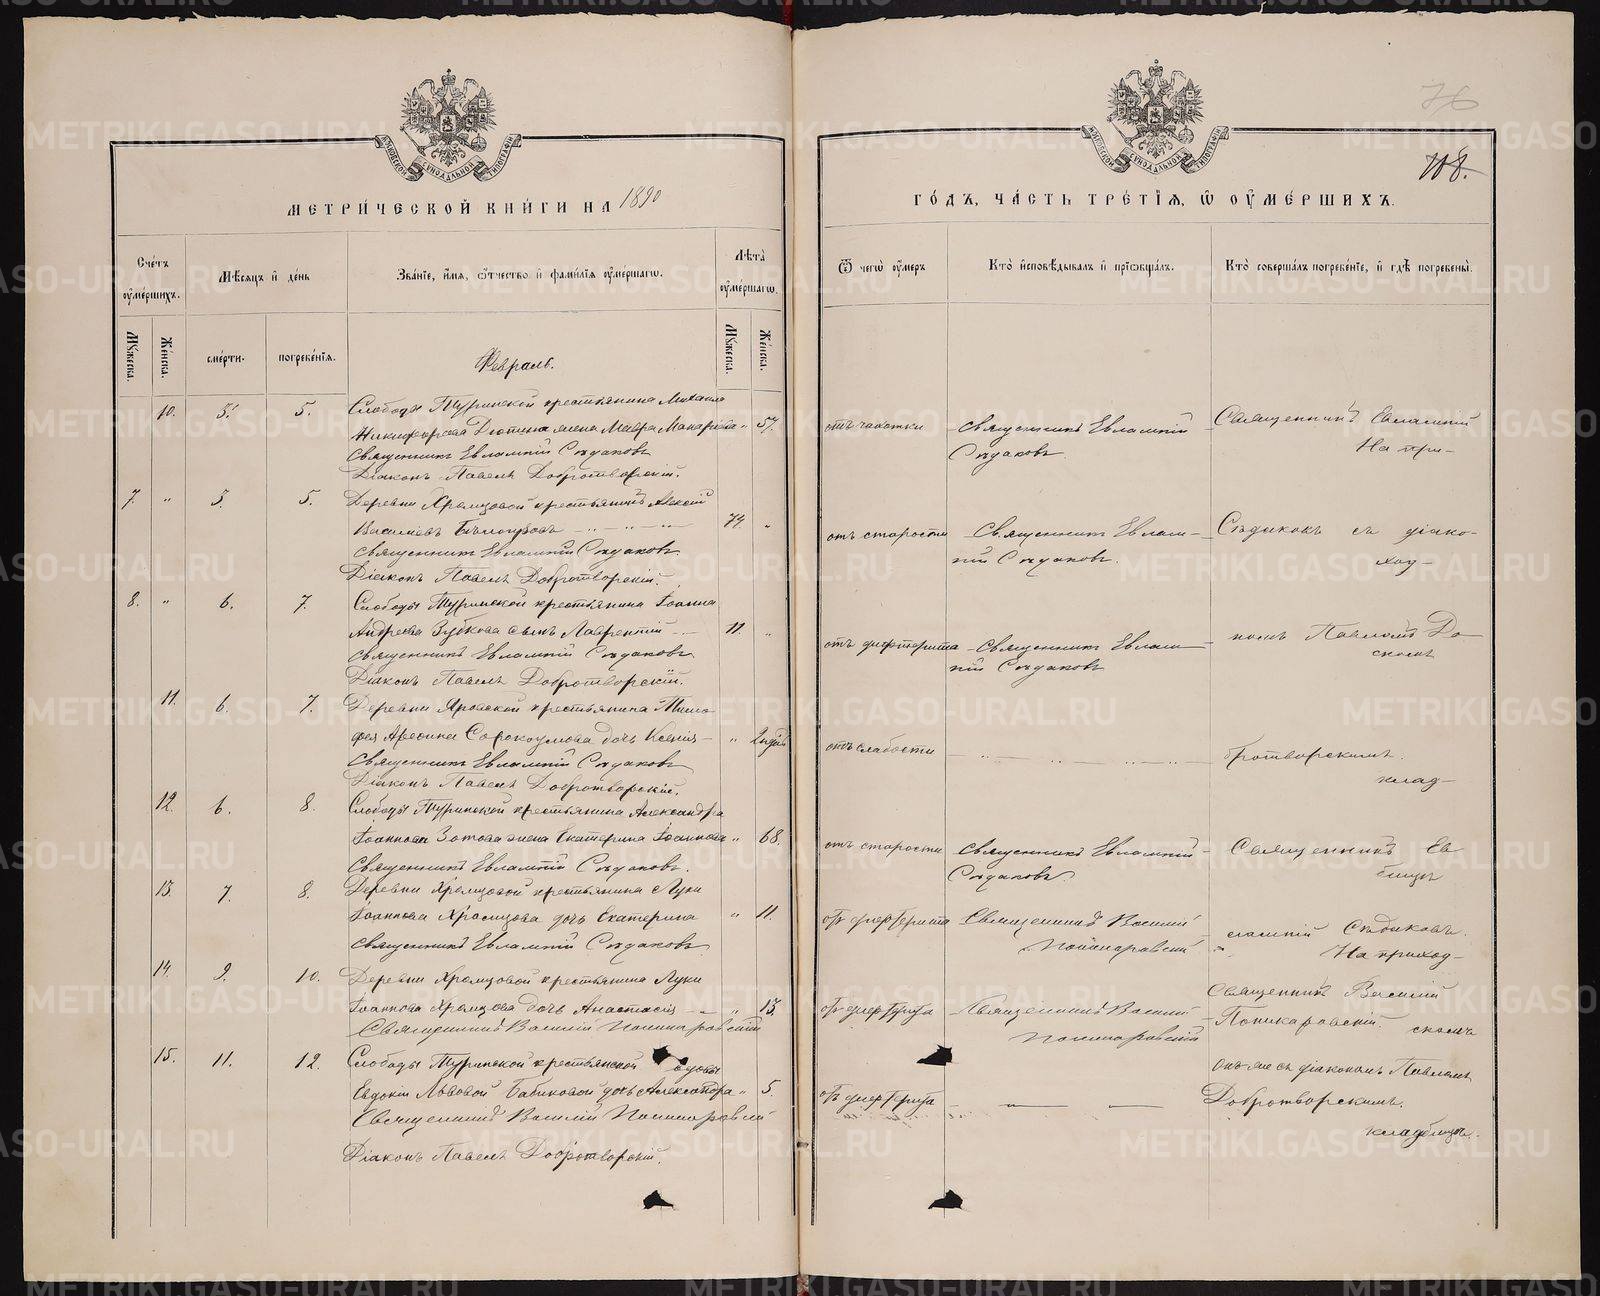 МЕТРИ́ЧЕСКОЙ КНИ́ГИ НА 1890
Сче́тъ оу҆ме́ршихъ.
Мѣ́сяцъ и҆ де́нь
Зва́нїе, и҆́мя, ѻ҆́тчество и҆ фами́лїя оу҆ме́ршагѡ.
Лѣта̀ оу҆ме́ршагѡ.
Мꙋ́жеска.
Же́нска.
сме́рти.
погребе́нїя.
Мꙋ́жеска.
Же́нска.
Февраль.
10. 3. 5. Слободы Туринской крестьянина Михаила
Никифорова жена Мавра Макарова " 57.
Священникъ Евлампій Сѣдаковъ
Діаконъ Павелъ Добротворскій.
7. " 3. 5. Деревни Храмцовой крестьянинъ Алексій
Василіевъ 74 "
Священникъ Евлампій Сѣдаковъ.
Діаконъ Павелъ Добротворскій.
8. " 6. 7. Слободы Туринской крестьянина Іоанна
Андреева Зубкова сынъ Лаврентій 11. "
Священникъ Евлампій Сѣдаковъ.
Діаконъ Павелъ Добротворскій.
11. 6. 7. Деревни крестьянина Тимо-
фея Сорокоумова дочь Ксенія "
Священникъ Евлампій Сѣдаковъ
Діаконъ Павелъ Добротворскій.
12. 6. 8. Слободы Туринской крестьянина Александра
Іоаннова Зотова жена Екатерина Іоаннова " 68.
Священникъ Евлампій Сѣдаковъ.
13. 7. 8. Деревни Храмцовой крестьянина Луки
Іоаннова Храмцова дочь Екатерина " 11.
Священникъ Евлампій Сѣдаковъ
14. 9. 10. Деревни Храмцовой крестьянина Луки
Іоаннова Храмцова дочь Анастасія " 13.
Священникъ Василій Поникаровскій
15. 11. 12. Слободы Туринской крестьянской вдовы
Евдокіи Львовой Бабиковой дочь Александра " 5.
Священникъ Василій Поникаровскій
Діаконъ Павелъ Добротворскій.
76
118.
ГО́ДЪ, ЧА́СТЬ ТРЕ́ТЇЯ, Ѡ҆ ОУ҆МЕ́РШИХЪ.
Ѿ чегѡ̀ оу҆́меръ
Кто̀ и҆сповѣ́дывалъ и҆ прїѡбща́лъ.
Кто̀ соверша́лъ погребе́нїе, и҆ гдѣ̀ погребены̀.
отъ чахотки
Священникъ Евлампій
Сѣдаковъ.
Священникъ Евлампій
На при-
отъ старости
Священникъ Евлам-
пій Сѣдаковъ.
Сѣдиковъ съ діако-
ход-
отъ дифтерита
Священникъ Евлам-
пій Сѣдаковъ
номъ Павломъ До-
скомъ
отъ слабости
бротворскимъ.
клад-
отъ старости
Священникъ Евлампій
Сѣдаковъ
Священникъ Ев
бищѣ
отъ дифтерита
Священникъ Василій
Поникаровскій
лампій Сѣдиковъ.
На приход-
отъ дифтерита
Священникъ Василій
Поникаровскій
Священникъ Василій
Поникаровскій скомъ
отъ дифтерита
Онъ же съ діакономъ Павломъ
Добротворскимъ.
кладбищѣ.
METRIKI.GASO-URAL.RU